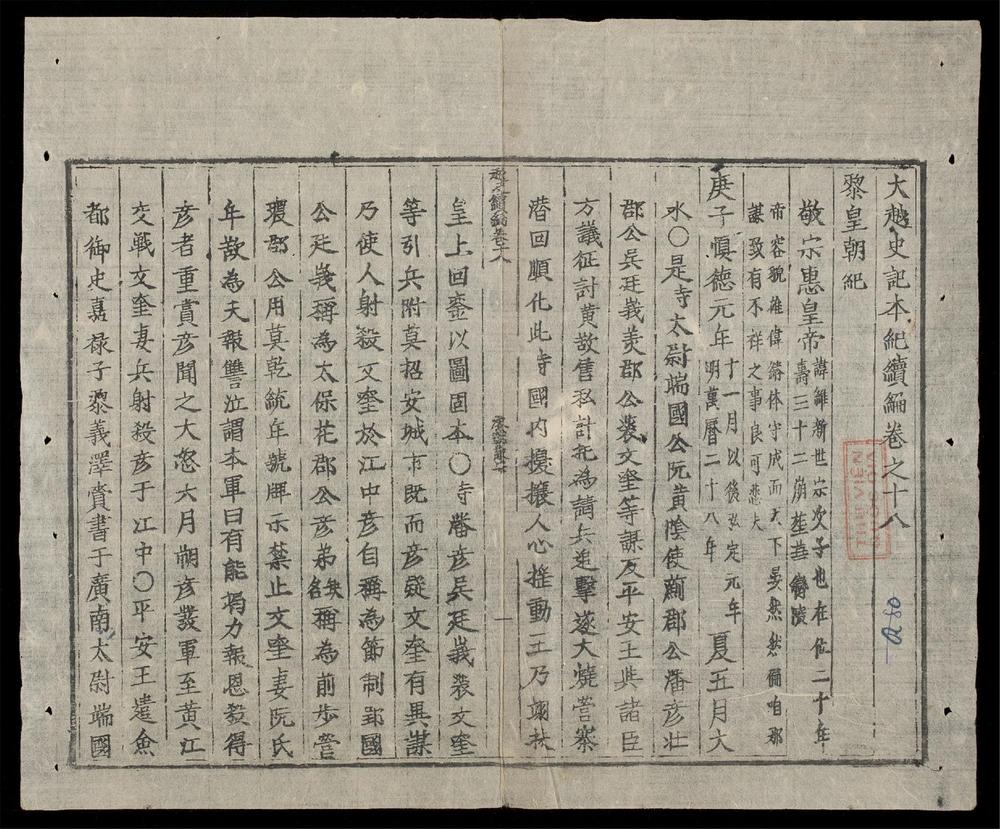 大越史記本紀續編卷之十八
黎皇朝紀
敬宗惠皇帝
諱維新世宗次子也在位二十年
壽三十二崩塟華 陵
帝容貌雄偉 体守成而天下晏然然循咱那
謀致有不祥之事良可悲夫
庚子慎德元年
十一月以後弘定元年
明萬曆二十八年
夏五月大
水○是時太尉端國公阮黃陰使 郡公潘彦壮
郡公吳廷義美郡公裴文奎等謀反平安王與諸臣
方議征討黃故售私計托為請兵追擊遂大燒營寨
潜回順化此時國内擾攘人心揺動王乃翊扶
皇上回 以圖固本○時潘彦吳廷義裴文奎
等引兵附莫招安城市既而彦疑文奎有異謀
乃使人射殺文奎於江中彦自稱為節制郢國
公廷義稱為太保花郡公彦弟
缺名
稱為前歩營
瓌郡公用莫乾統年號牌示禁止文奎妻阮氏
年欲為夫報讐泣謂本軍曰有能竭力報恩殺得
彦者重賞彦聞之大怒六月朔彦發軍至黃江
交戰文奎妻兵射殺彦于江中○平安王遣僉
都御史嘉禄子黎義澤賫書于廣南太尉端國
一
THƯ VIỆN